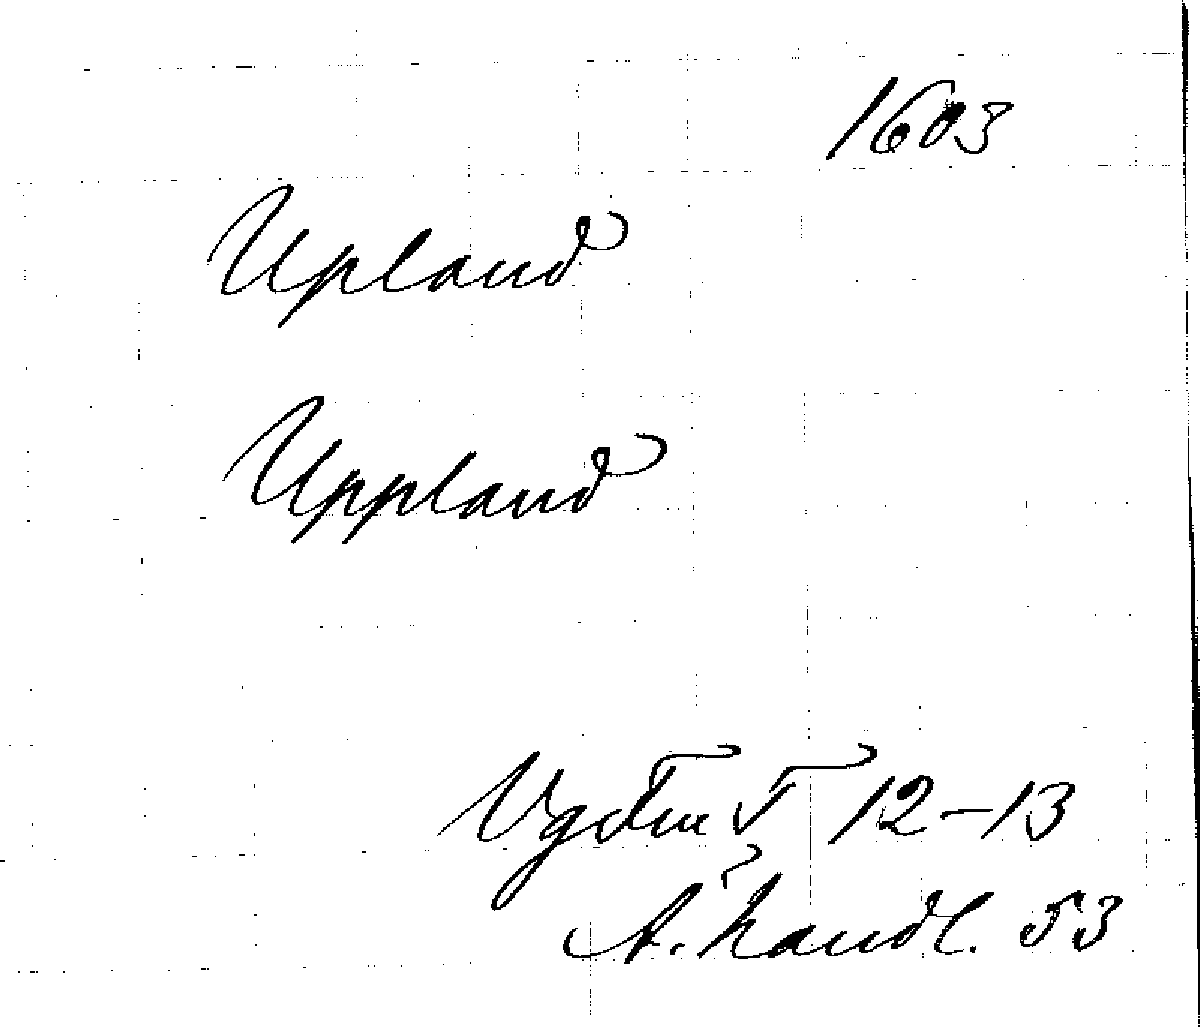 1603
Upland
Uppland
12-13
A. handl. 53